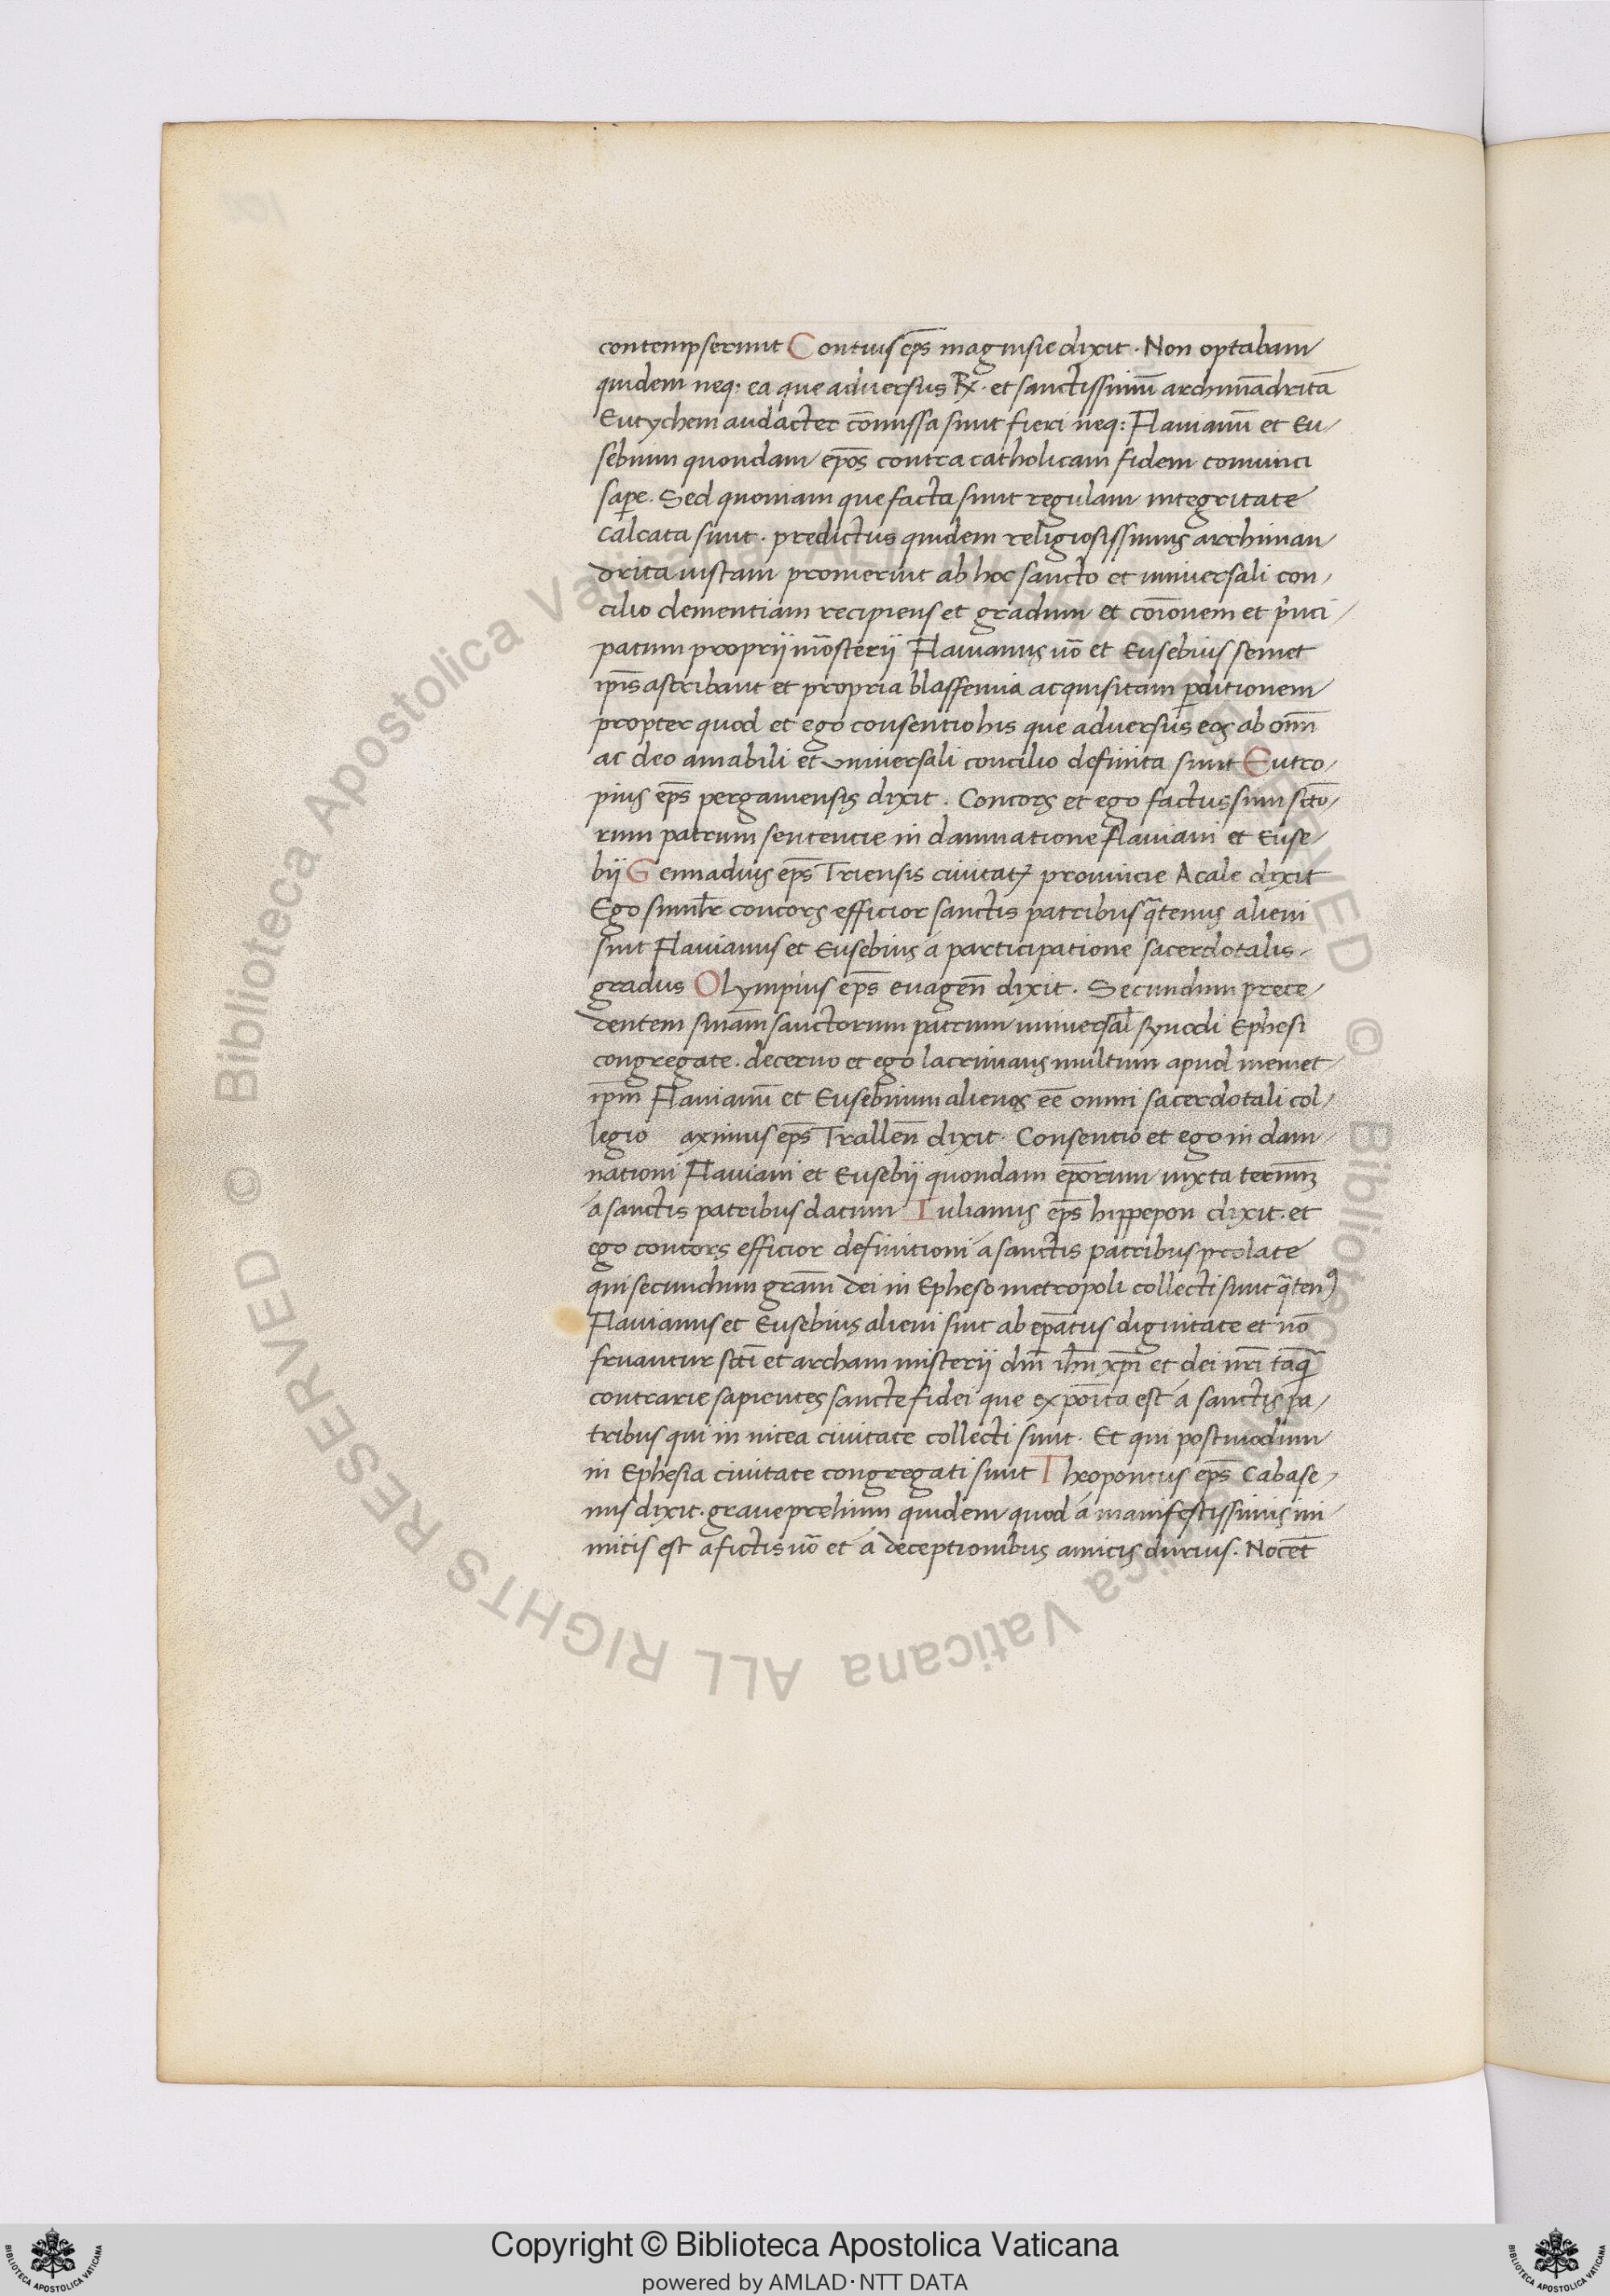 contempserunt Contius ep̄s magnisie dixit · Non optabam
quidem neq; ea que adversus P̄X · et sanctissimū archimādritā
Eutychem audacter cōmissa sunt fieri neq: Flavianū et Eu/
sebium quondam ep̄os contra catholicam fidem convinci
sapere. Sed quoniam que facta sunt regulam integritate
calcata sunt · predictus quidem religiosissimus archiman/
drita iustam promeruit ab hoc sancto et universali con/
cilio clementiam recipiens et gradum et cōionem et p'nci/
patum proprij mōsterij Flavianus uō et Eusebius semet
ip̄is ascribant et propria blasfemia acquisitam perditionem
propter quod et ego consentio his que adversus eos ab om̄i
ac deo amabili et universali concilio definita sunt Eutro/
pius ep̄s pergamensis dixit . Concors et ego factus sum sc̄to/
rum patrum sententie in damnatione Flaviani et Euse/
bij Gennadius ep̄s Triensis civitatꝭ provincie Acale dixit
Ego simil'r concors efficior sanctis patribus q̄tenus alieni
sint Flavianus et Eusebius á participatione sacerdotalis/
gradus Olympius ep̄s evageñ dixit . Secundum prece/
dentem sniam̄ sanctorum patrum universal' synodi Ephesi
congregate . decerno et ego lacrimans multum apud memet/
ip̄m Flavianū et Eusebium alienos eē omni sacerdotali col/
legio aximus ep̄s Trallen̄ dixit · Consentio et ego in dam/
nationi Flaviani et Eusebij quondam ep̄orum iuxta termī̄ꝫ
á sanctis patribus datum Iulianus ep̄s hippepon dixit . et
ego concors efficior definitioni á sanctis patribus prolate
qui secundum gram̄ dei in Epheso metropoli collecti sunt q̄tenꝰ
Flavianus et Eusebius alieni sint ab ep̄atus dignitate et nō
fruantur sc̄ti et archam misterij dn̄i ih̄u xp̄i et dei nr̄i tāq̄
contrarie sapientes sancte fidei que expōita est á sanctis pa/
tribus qui in nicea civitate collecti sunt · Et qui postmodum
in Ephesia civitate congregati sunt Theopontus ep̄s Cabase/
nus dixit . grave prelium quidem quod á manifestissimis ini/
micis est á fictis uō et á deceptionibus amicis durius . Nocēt
Copyright © Biblioteca Apostolica Vaticana
powered by AMLAD·NTT DATA
© Biblioteca Apostolica Vaticana ALL RIGHTS RESERVED © Biblioteca Apostolica Vaticana ALL RIGHTS RESERVED
BIBLIOTECA APOSTOLICA VATICANA
BIBLIOTECA APOSTOLICA VATICANA